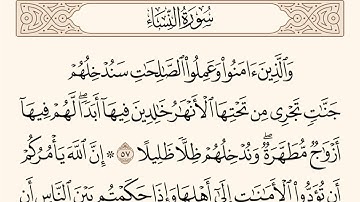 سُورَةُ النِّسَاءِ
وَالَّذِينَ ءَامَنُوا۟ وَعَمِلُوا۟ الصَّـٰلِحَـٰتِ سَنُدْخِلُهُمْ
جَنَّـٰتٍ تَجْرِى مِن تَحْتِهَا الْأَنْهَـٰرُ خَـٰلِدِينَ فِيهَآ أَبَدًا ۖ لَّهُمْ فِيهَآ
أَزْوَٰجٌ مُّطَهَّرَةٌ ۖ وَنُدْخِلُهُمْ ظِلًّا ظَلِيلًا ٥٧ ۞ إِنَّ اللَّهَ يَأْمُرُكُمْ
أَن تُؤَدُّوا۟ الْأَمَـٰنَـٰتِ إِلَىٰٓ أَهْلِهَا وَإِذَا حَكَمْتُم بَيْنَ النَّاسِ أَن